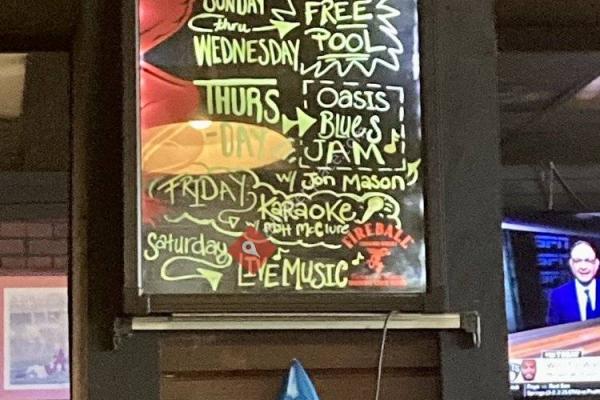 SUNDAY
thru
WEDNESDAY
FREE
POOL
THURS
DAY
Oasis
Blues
JAM
w/ Jon Mason
FRIDAY
Karaoke
w/ Matt McClure
Saturday
LIVE MUSIC
FIREBALL
ESPN